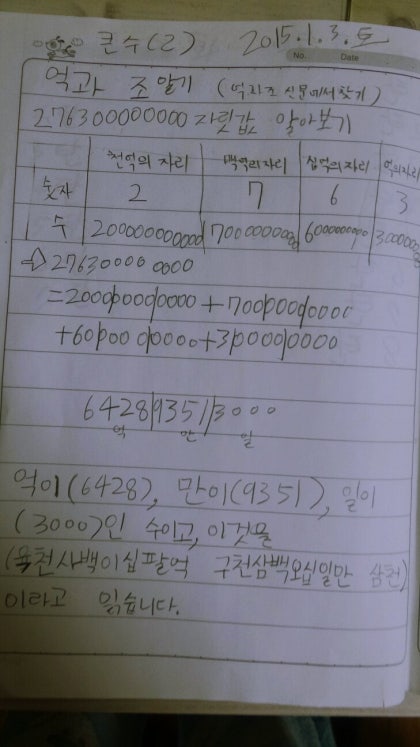 큰수(2) 2015.1.3.토
No. Date
억과 조 알기 (억과 조 신문에서 찾기)
276300000000 자릿값 알아보기
천억의 자리 백억의자리 십억의 자리 억의자리
숫자 2 7 6 3
수 200000000000 70000000000 6000000000 300000000
⇨ 276300000000
=200000000000+70000000000
+6000000000+300000000
6428|9351|3000
억 만 일
억이(6428), 만이(9351), 일이
(3000)인 수이고, 이것을
(육천사백이십팔억 구천삼백오십일만 삼천)
이라고 읽습니다.